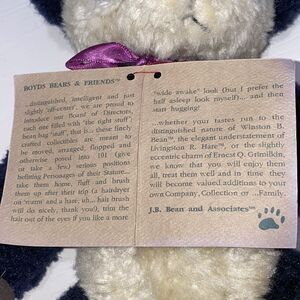 BOYDS BEARS & FRIENDS™
...distinguished, intelligent and just
slightly "off-center", we are proud to
introduce our Board of Directors,
each one filled with "the right stuff",
bean bag "stuff", that is... these finely
crafted collectibles are meant to
be moved, arranged, flopped and
otherwise posed into 101 (give
or take a few) serious positions
befitting Personages of their Stature...
take them home, fluff and brush
them up after their nap (a hairdryer
on "warm" and a hare, uh... hair brush
will do nicely, thank you!), trim the
hair out of the eyes if you like a more
"wide awake" look (but I prefer the
half asleep look myself)... and then
start hugging!
...whether your tastes run to the
distinguished nature of Winston B.
Bean™, the elegant understatement of
Livingston R. Hare™, or the slightly
eccentric charm of Ernest Q. Grimilkin,
we know that you will enjoy them
all, treat them well and in time they
will become valued additions to your
own Company, Collection or ...Family.
J.B. Bean and Associates™